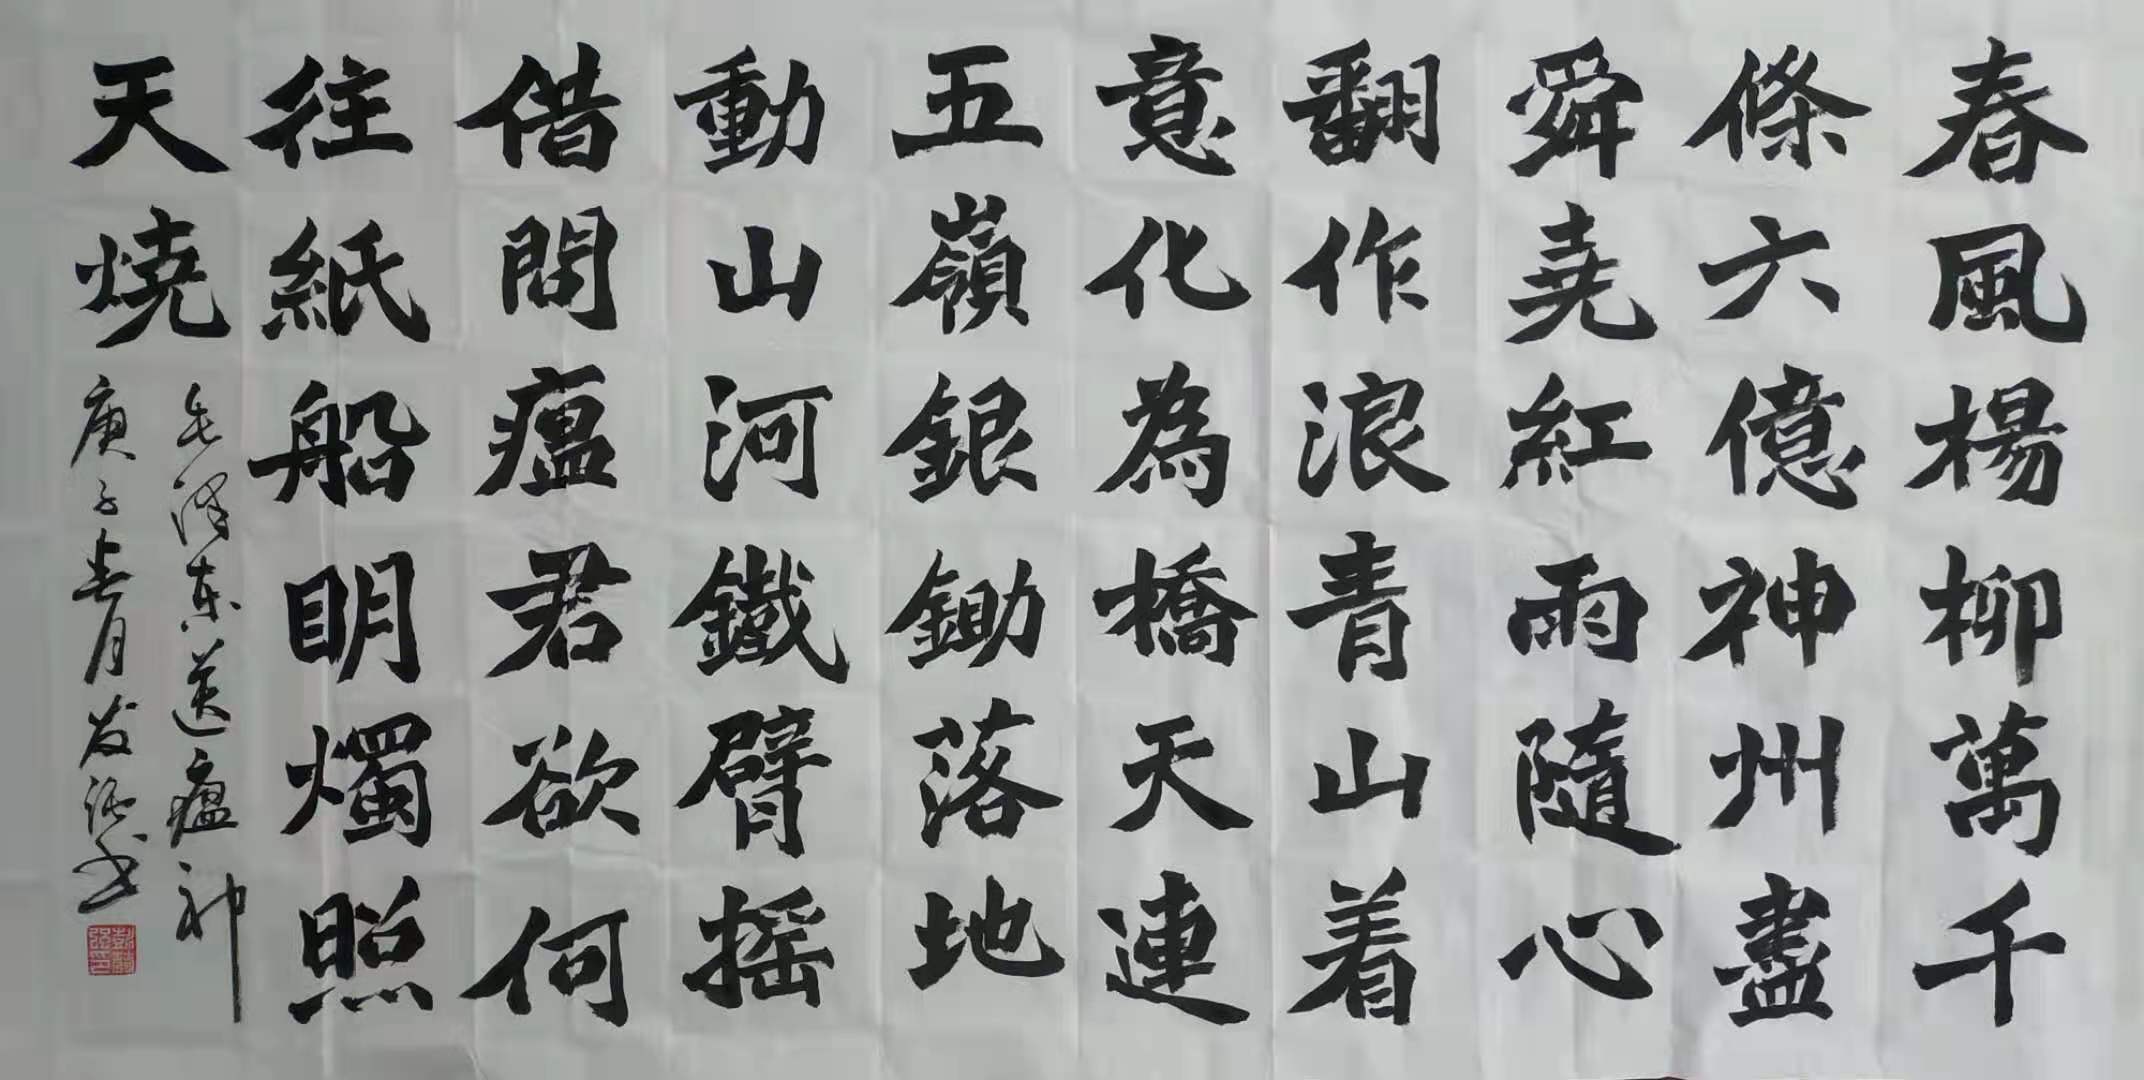 春風楊柳萬千
條六億神州盡
舜堯紅雨隨心
翻作浪青山着
意化為橋天連
五嶺銀鋤落地
動山河鐵臂摇
借問瘟君欲何
往紙船明燭照
天燒
毛澤東送瘟神
庚子春月发强书